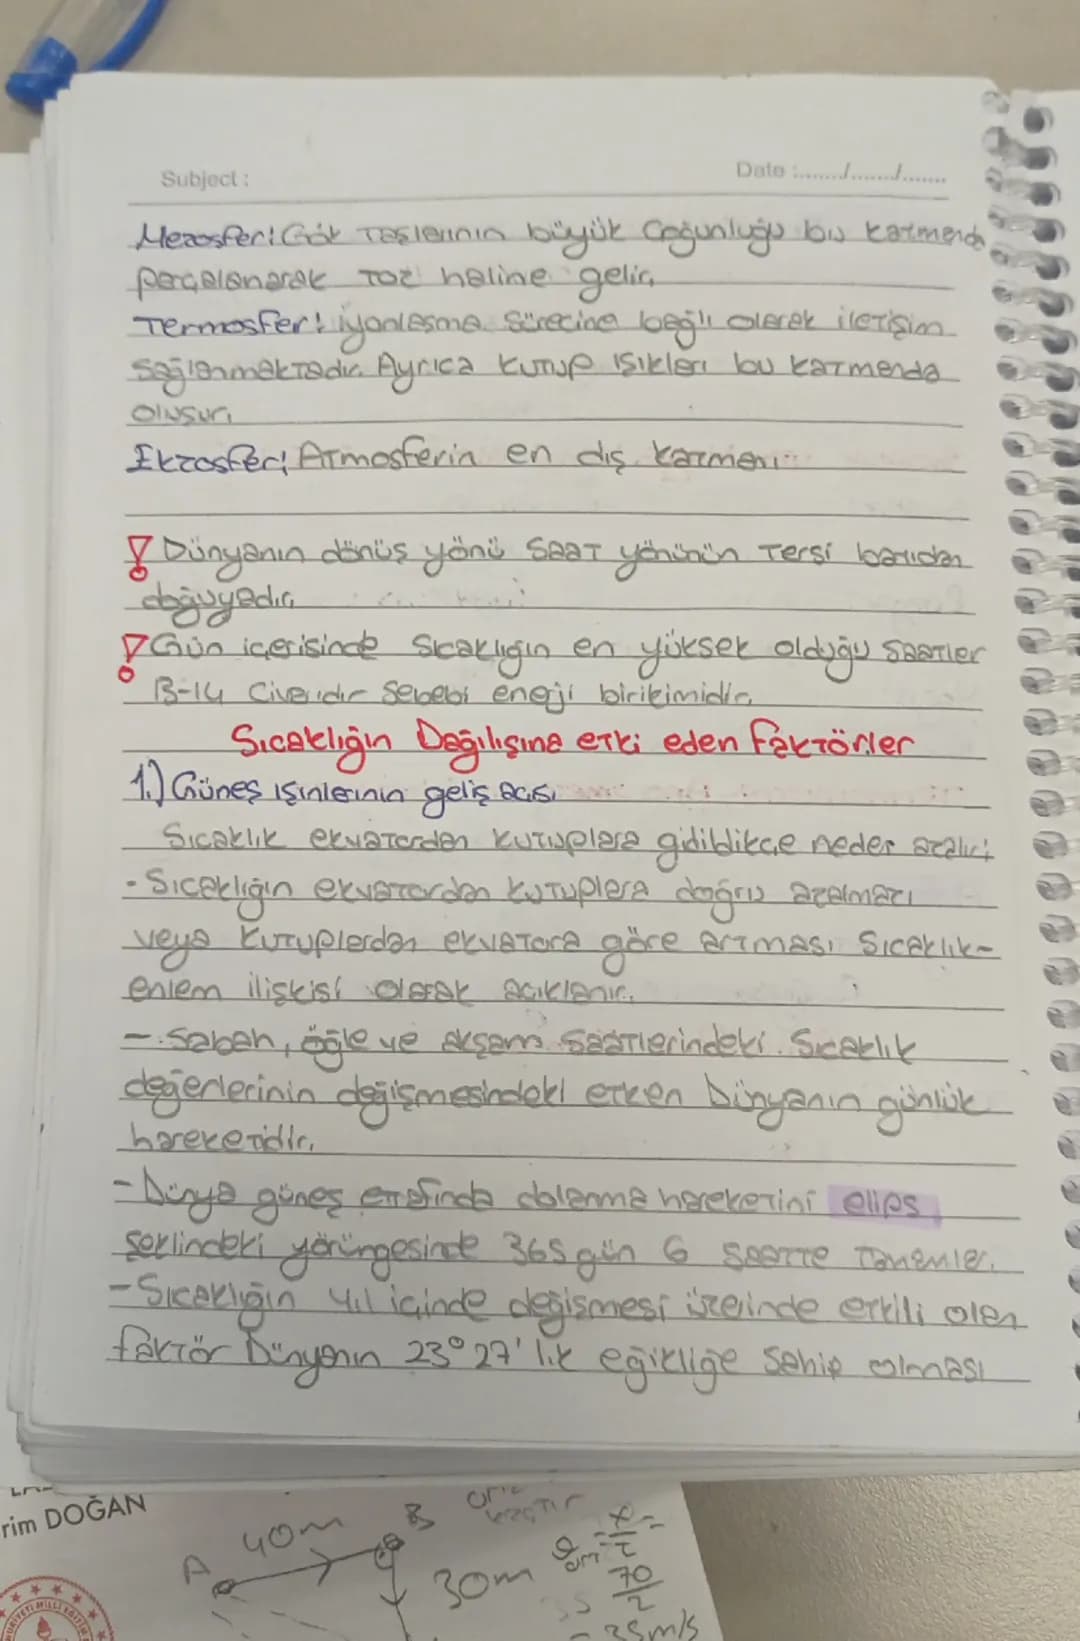 Subject :
Date :......./......./.......
Mezosfer: Gök Taşlarının büyük çoğunluğu bu katmanda
parçalanarak Toz haline gelir.
Termosfer: iyonlaşma Sürecine bağlı olarak iletişim
Sağlanmaktadır. Ayrıca kutup ışıkları bu katmanda
oluşur.
Ekzosfer: Atmosferin en dış katmanı
! Dünyanın dönüş yönü Saat yönünün Tersi batıdan
doğuyadır.
! Gün içerisinde Sıcaklığın en yüksek olduğu Saatler
13-14 Civarıdır Sebebi enerji birikimidir.
Sıcaklığın Dağılışına etki eden faktörler
1.) Güneş ışınlarının geliş açısı
Sıcaklık ekvatordan kutuplara gidildikçe neden azalır?
- Sıcaklığın ekvatordan kutuplara doğru azalması
veya kutuplardan ekvatora göre artması Sıcaklık-
enlem ilişkisi olarak açıklanır.
- Sabah, öğle ve akşam Saatlerindeki Sıcaklık
değerlerinin değişmesindeki etken Dünyanın günlük
hareketidir.
- Dünya güneş etrafında dolanma hareketini elips
şeklindeki yörüngesinde 365 gün 6 saatte tamamlar.
- Sıcaklığın yıl içinde değişmesi üzerinde etkili olan
faktör Dünyanın 23° 27' lık eğikliğe sahip olması
rim DOĞAN
A 40m B
30m
70
2
= 35m/s